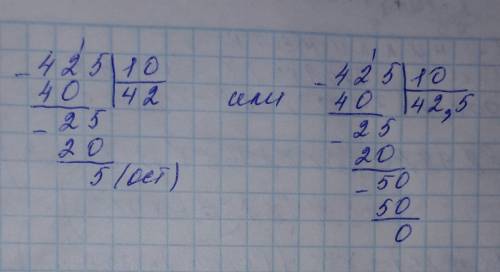 - 425 | 10
40 | 42
- 25
20
5 (ост)
или
- 425 | 10
40 | 42,5
- 25
20
- 50
50
0